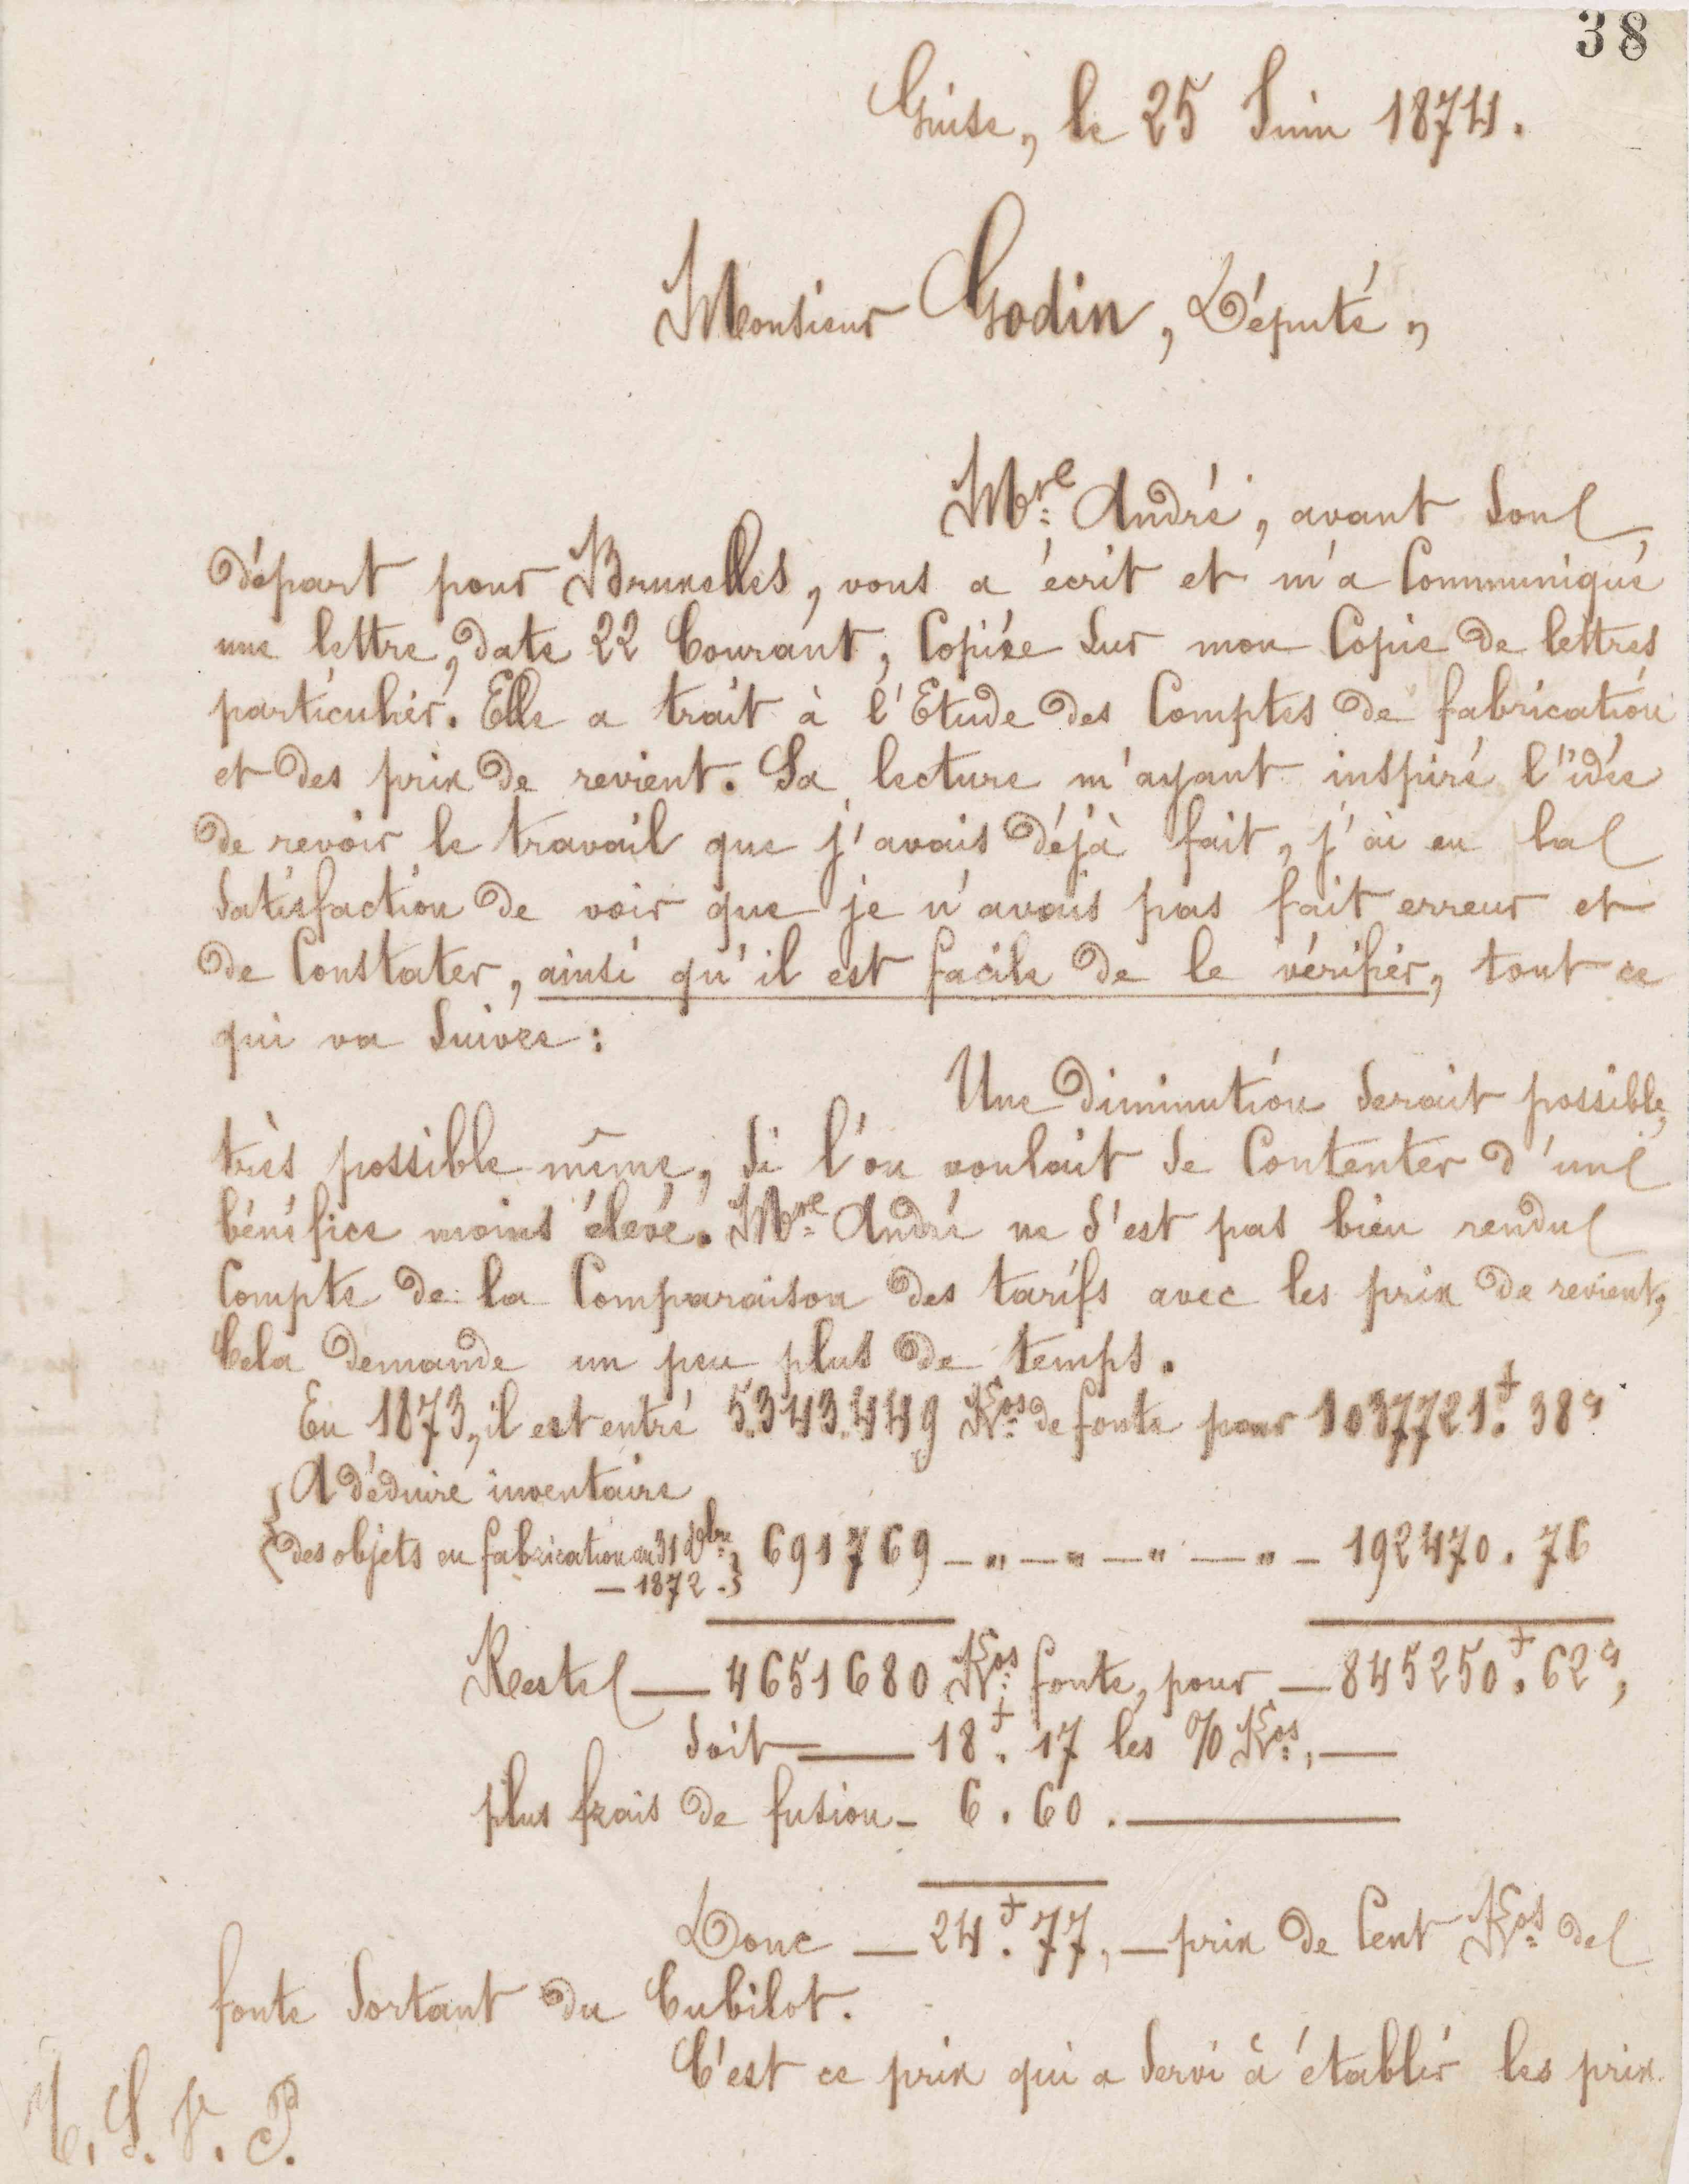 38
Guise, le 25 Juin 1874.
Monsieur Godin, Député,
Mre André, avant son
départ pour Bruxelles, vous a écrit et m'a communiqué
une lettre, date 22 Courant, Copiée sur mon Copie de lettres
particulier. Elle a trait à l'Etude des Comptes de fabrication
et des prix de revient. Sa lecture m'ayant inspiré l'idée
de revoir le travail que j'avais déjà fait, j'ai eu la
satisfaction de voir que je n'avais pas fait erreur et
de Constater, ainsi qu'il est facile de le vérifier, tout ce
qui va suivre :
Une diminution serait possible,
très possible même, si l'on voulait se Contenter d'un
bénéfice moins élevé. Mre André ne s'est pas bien rendu
Compte de la Comparaison des tarifs avec les prix de revient,
Cela demande un peu plus de temps.
En 1873, il est entré 5.343.449 Kos de fonte pour 1037721f. 38c
A déduire inventaire
des objets en fabrication au 31 Xbre } 691769 — " — " — " — " — 192470. 76
— 1872. }
Reste — 4651680 Kos fonte, pour — 845250f. 62c,
Soit — 18f. 17 les % Kos, —
plus frais de fusion — 6. 60. —
Donc — 24f. 77, — prix de Cent Kos de
fonte sortant du Cubilot.
C'est ce prix qui a servi à établir les prix
T. S. V. P.